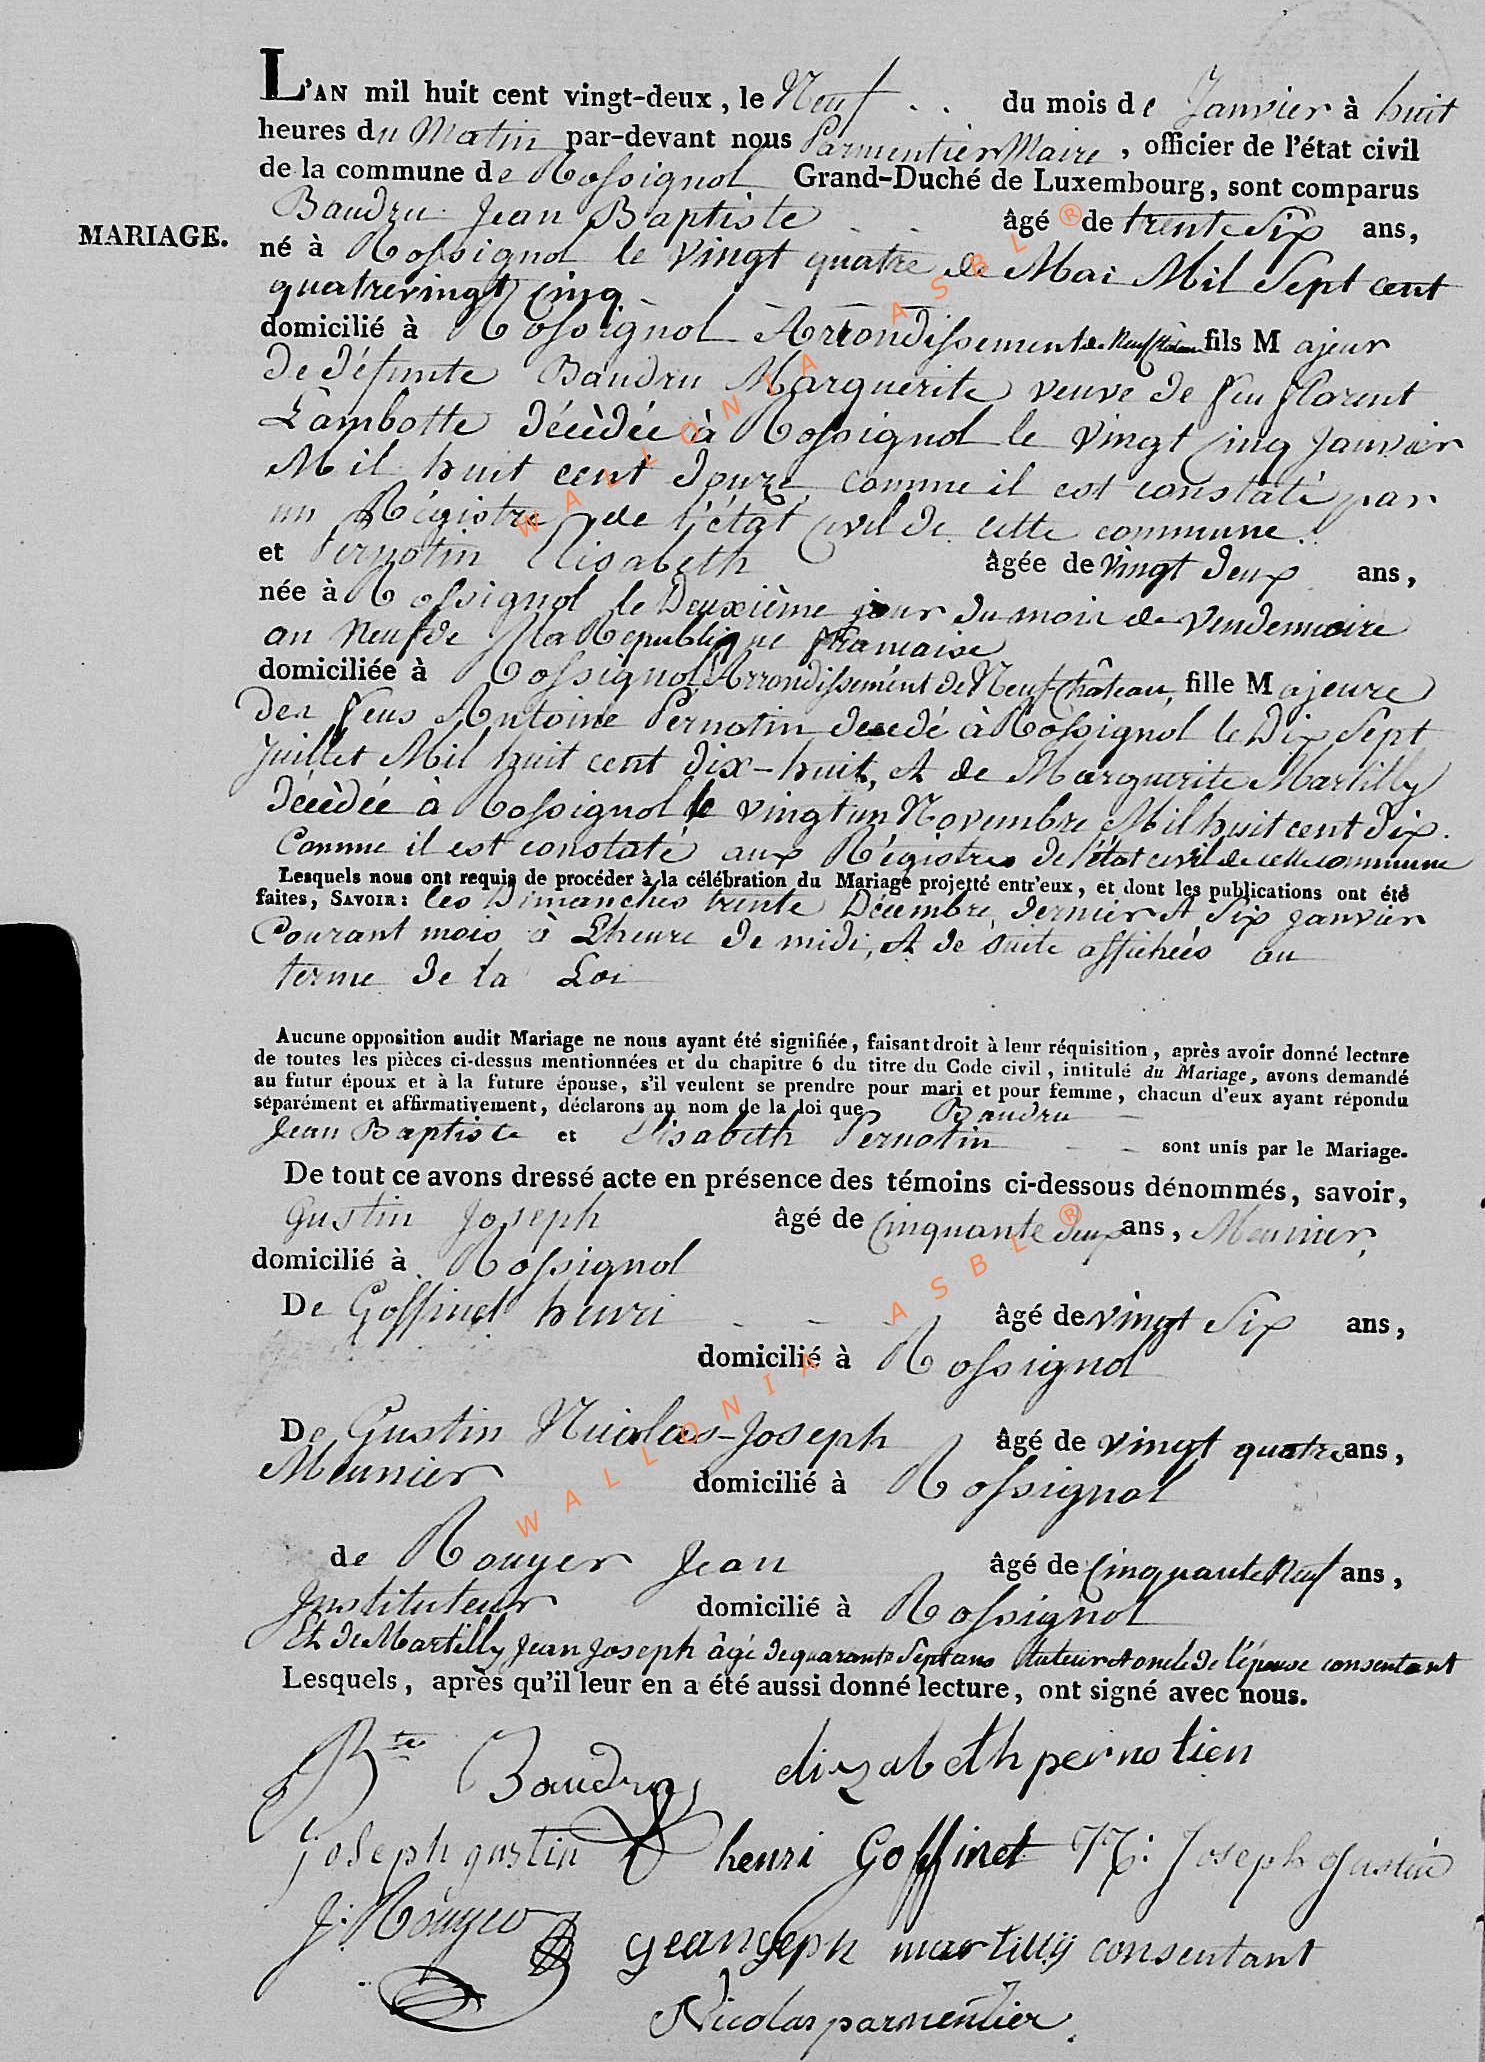 L'AN mil huit cent vingt-deux, le Neuf du mois de Janvier à huit
heures du Matin par-devant nous Parmentier Maire, officier de l'état civil
de la commune de Rossignol Grand-Duché de Luxembourg, sont comparus
Baudru Jean Baptiste âgé de trente Six ans,
MARIAGE.
né à Rossignol le Vingt quatre de Mai Mil Sept cent
quatrevingt Cinq
domicilié à Rossignol Arrondissement de Neufchateau fils Majeur
de défunte Baudru Marguerite veuve de feu florent
Lambotte décèdée à Rossignol le vingt Cinq Janvier
Mil huit cent douze, comme il est constaté par
un Régistre de l'état Civil de cette commune.
et Pernotin Elisabeth âgée de Vingt deux ans,
née à Rossignol le Deuxième jour du mois de Vendemiaire
an Neuf de la Republique francaise
domiciliée à Rossignol Arrondissement de Neuf-Château, fille Majeure
des feus Antoine Pernotin decedé à Rossignol le Dix Sept
Juillet Mil huit cent dix-huit, et de Marguerite Martilly
décèdée à Rossignol le vingt un Novembre Mil huit cent dix.
Comme il est constaté aux Régistres de l'état civil de cette commune
Lesquels nous ont requis de procéder à la célébration du Mariage projetté entr'eux, et dont les publications ont été
faites, SAVOIR: les Dimanches trente Décembre dernier et Six janvier
Courant mois à L'heure de midi, et de suite affichées au
terme de la Loi
Aucune opposition audit Mariage ne nous ayant été signifiée, faisant droit à leur réquisition, après avoir donné lecture
de toutes les pièces ci-dessus mentionnées et du chapitre 6 du titre du Code civil, intitulé du Mariage, avons demandé
au futur époux et à la future épouse, s'il veulent se prendre pour mari et pour femme, chacun d'eux ayant répondu
séparément et affirmativement, déclarons au nom de la loi que Baudru
Jean Baptiste et Elisabeth Pernotin sont unis par le Mariage.
De tout ce avons dressé acte en présence des témoins ci-dessous dénommés, savoir,
Gustin Joseph âgé de Cinquante deux ans, Meunier,
domicilié à Rossignol
De Goffinet henri âgé de vingt Six ans,
domicilié à Rossignol
De Gustin Nicolas-Joseph âgé de vingt quatre ans,
Meunier domicilié à Rossignol
de Rouyer Jean âgé de Cinquante Neuf ans,
Instituteur domicilié à Rossignol
Et de Martilly Jean Joseph âgé de quarante Sept ans tuteur et oncle de l'épouse consentant
Lesquels, après qu'il leur en a été aussi donné lecture, ont signé avec nous.
Bte Baudru elizabeth pernotien
Joseph gustin henri Goffinet N: Joseph Gustin
J: Rouyer geanjoseph martilly consentant
Nicolas parmentier
WALLONIA ASBL ®
WALLONIA ASBL ®